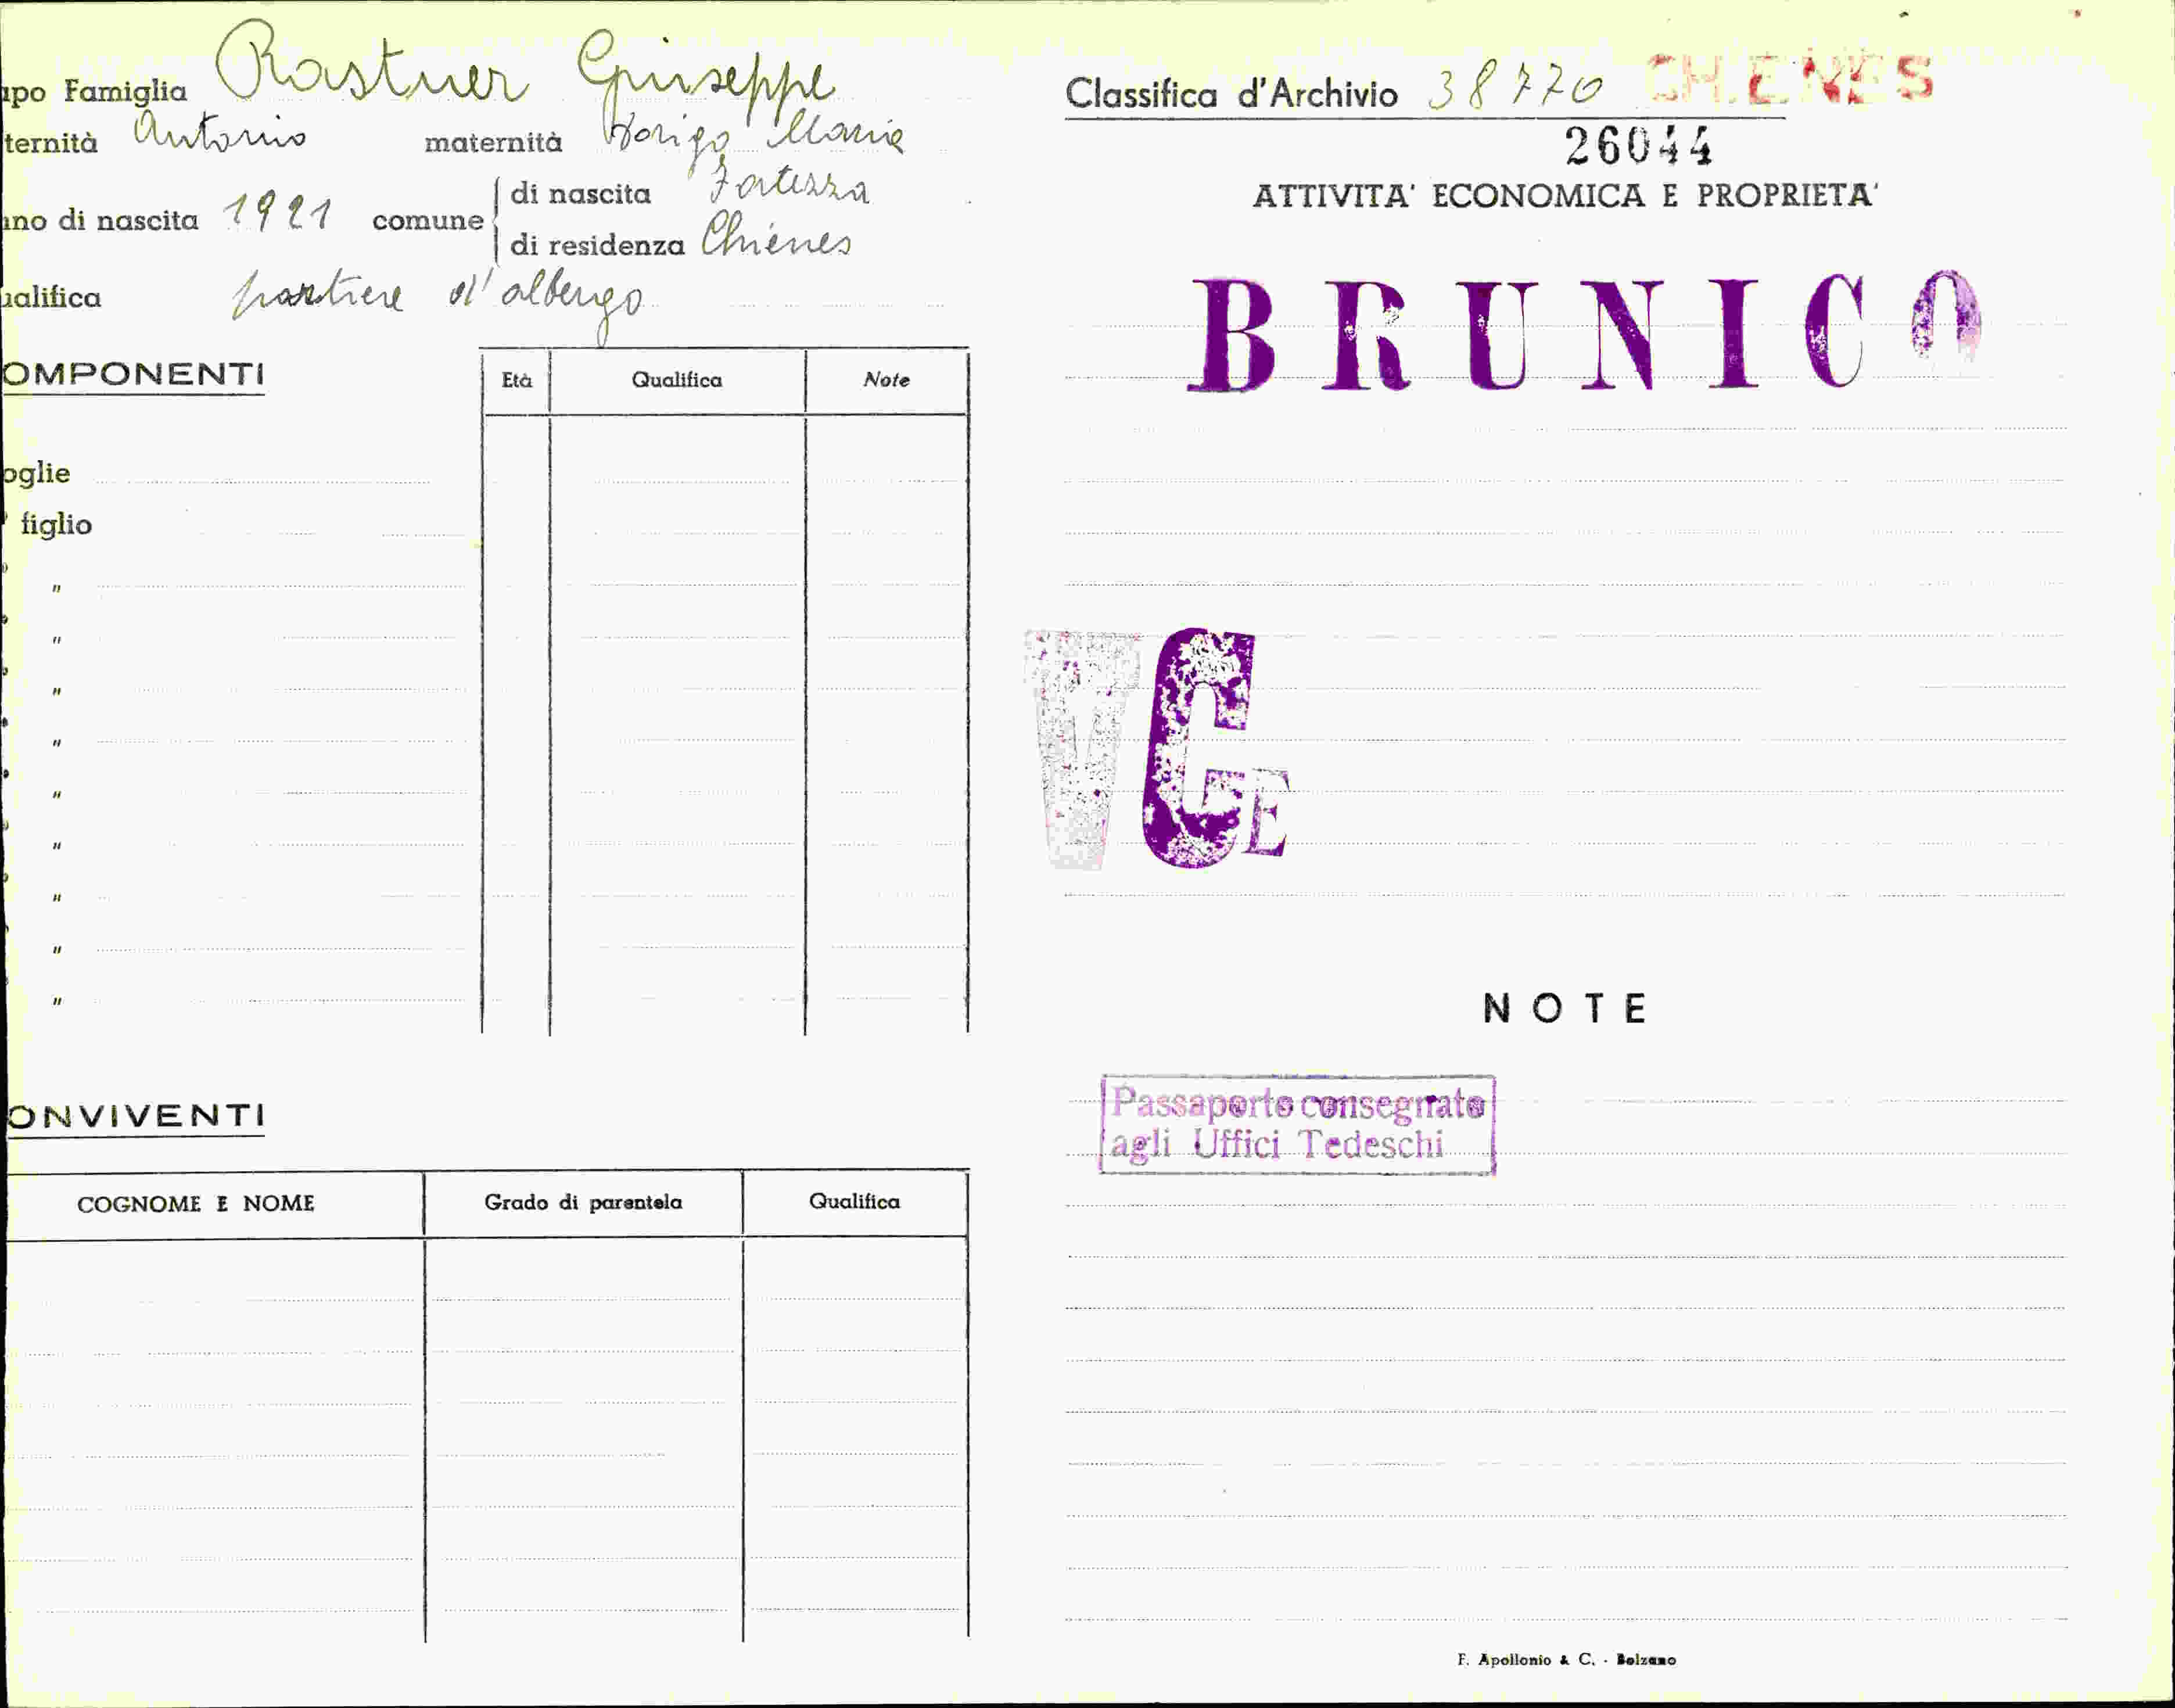 apo Famiglia Rastner Giuseppe
ternità Antonio maternità Dorigo Maria
nno di nascita 1921 comune di nascita Fortezza
di residenza Chienes
ualifica portiere d'albergo
OMPONENTI
Età Qualifica Note
oglie
figlio
"
"
"
"
"
"
"
"
"
ONVIVENTI
COGNOME E NOME Grado di parentela Qualifica
Classifica d'Archivio 38770 CHIENES
26044
ATTIVITA' ECONOMICA E PROPRIETA'
BRUNICO
V C E
NOTE
Passaporto consegnato
agli Uffici Tedeschi
F. Apollonio & C. - Bolzano